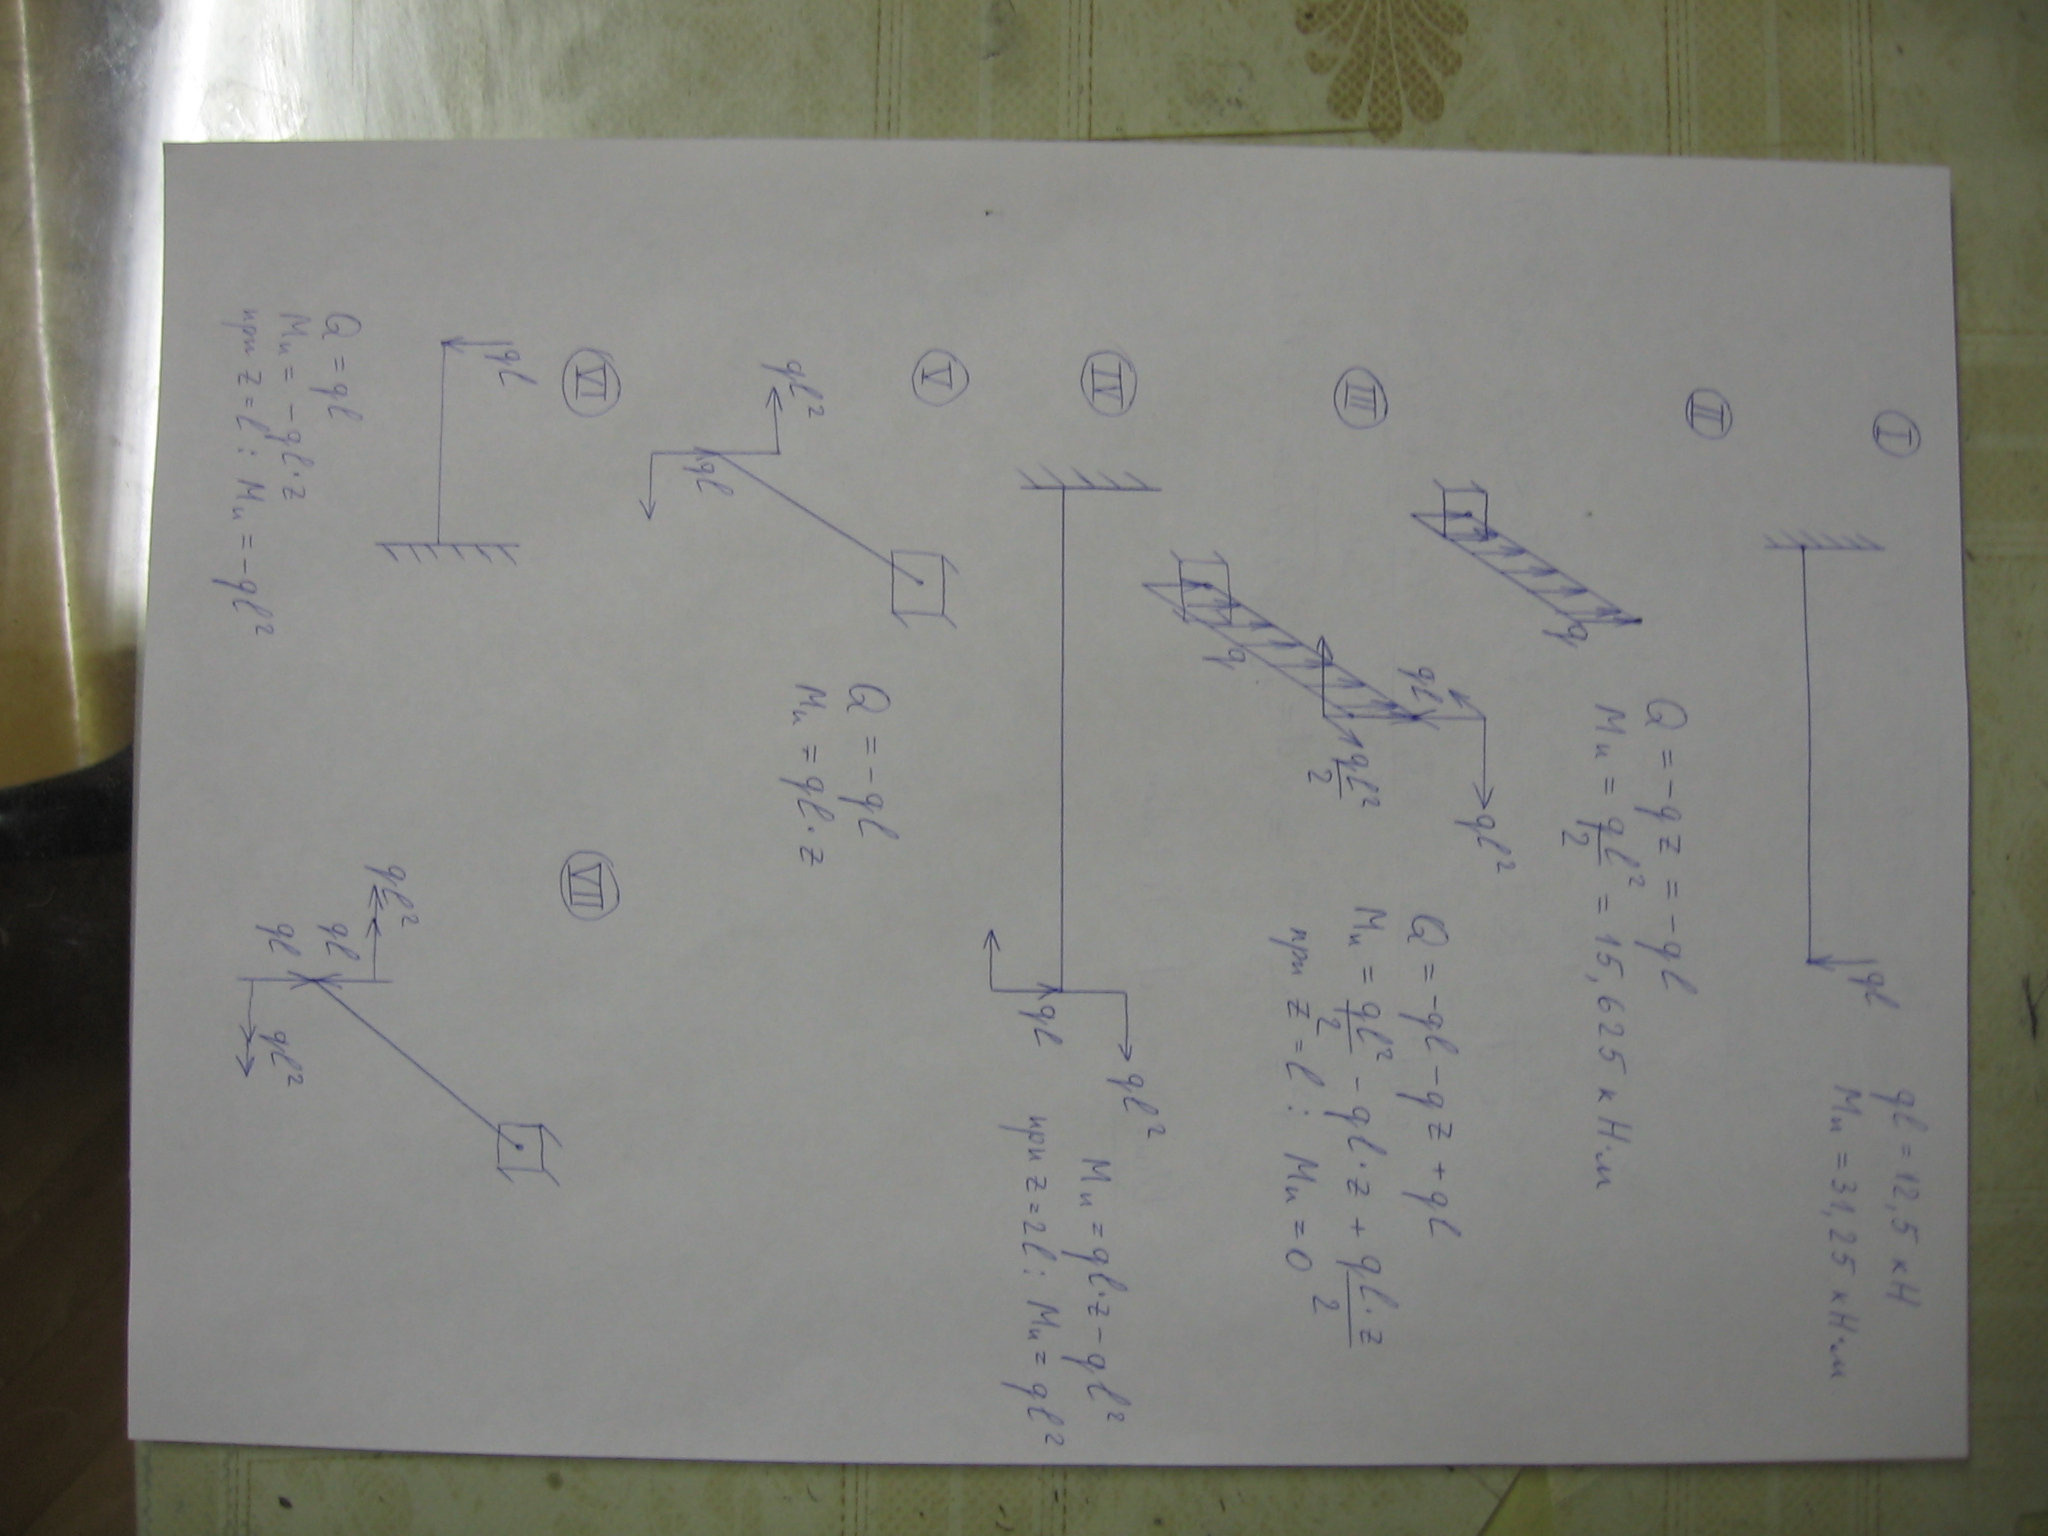 I
ql
ql = 12,5 кН
Mи = 31,25 кН·м
II
q
Q = -qz = -ql
Mи = ql²/2 = 15,625 кН·м
III
ql²
ql
ql²/2
q
Q = -ql - qz + ql
Mи = ql²/2 - ql·z + ql·z/2
при z = l : Mи = 0
IV
ql²
ql
Mи = ql·z - ql²
при z = 2l : Mи = ql²
V
ql²
ql
Q = -ql
Mи = ql·z
VI
ql
Q = ql
Mи = -ql·z
при z = l : Mи = -ql²
VII
ql²
ql
ql
ql²